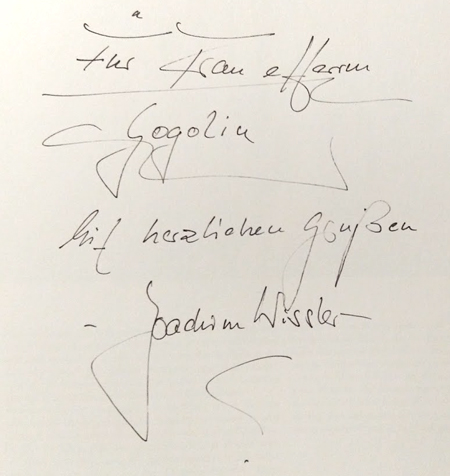 Für Frau & Herrn
Gogolin
Mit herzlichen Grüßen
- Joachim Wissler -